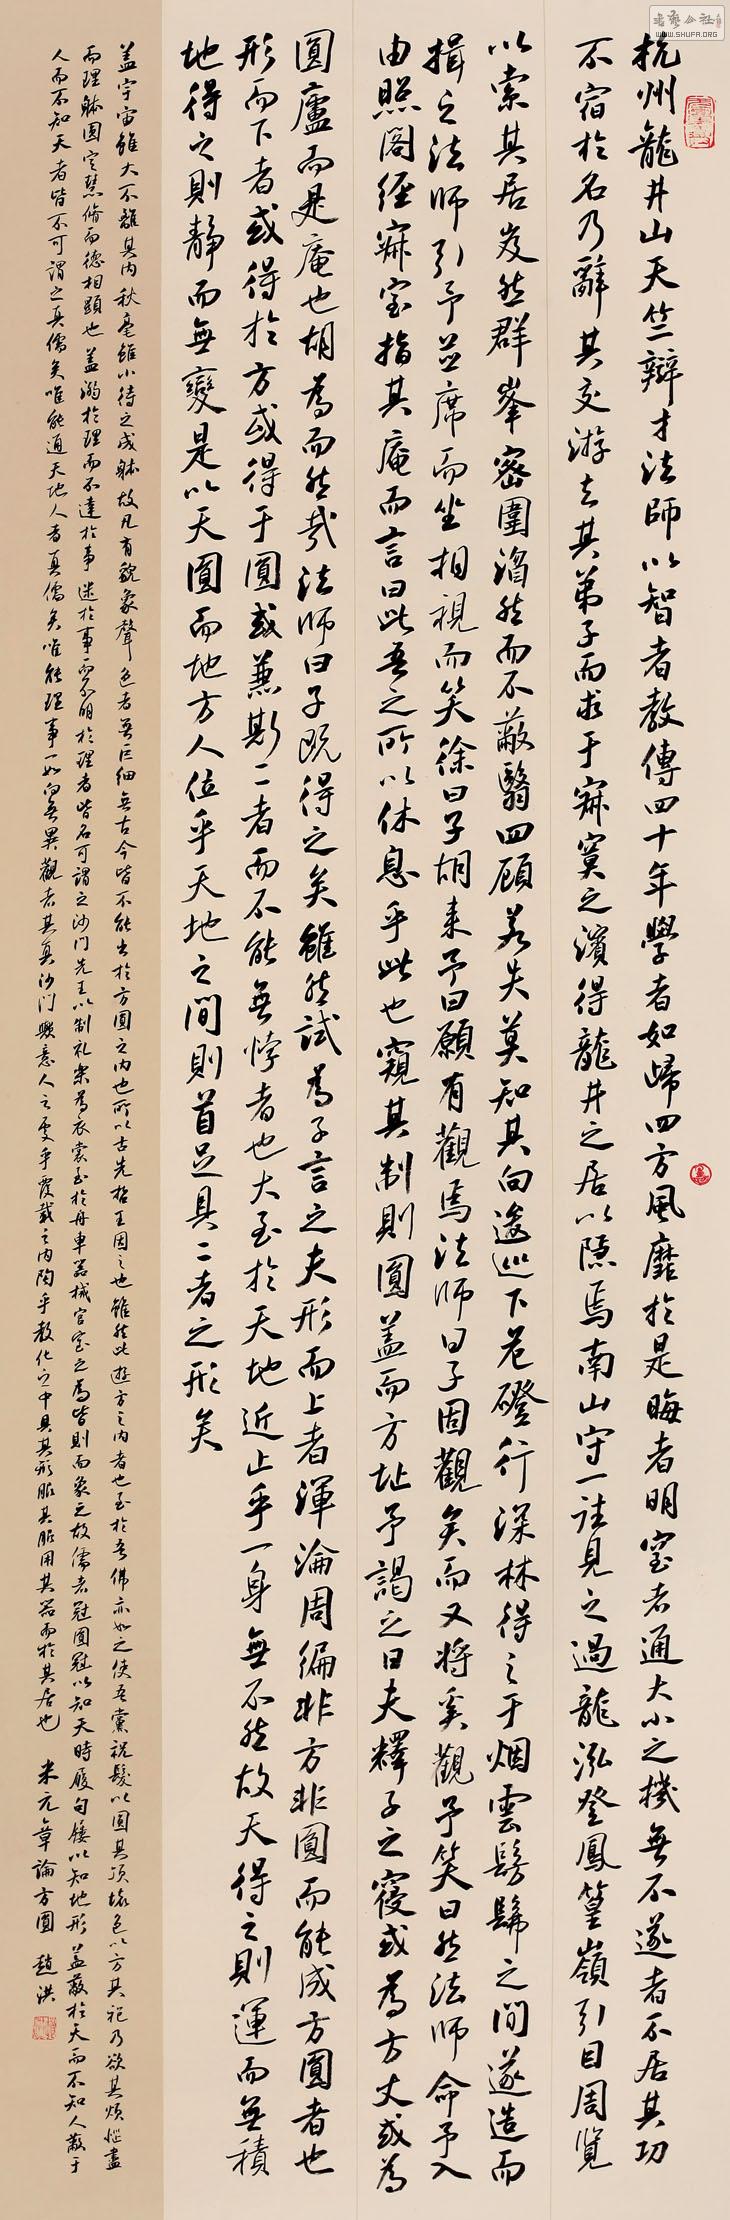 杭州龍井山天竺辯才法師以智者教傳四十年學者如歸四方風靡於是晦者明窒者通大小之機無不遂者不居其功
不宿於名乃辭其交游去其弟子而求于寂寞之濱得龍井之居以隱焉南山守一往見之過龍泓登鳳篁嶺引目周覽
以索其居岌然群峯密圍溜然而不蔽翳四顧若失莫知其向逡巡下危磴行深林得之于烟雲髣髴之間遂造而
揖之法師引予並席而坐相視而笑徐曰子胡来予曰願有觀焉法師曰子固觀矣而又將奚觀予笑曰然法師命予入
由照閣經寂室指其庵而言曰此吾之所以休息乎此也窺其制則圓盖而方址予謁之曰夫釋子之寢或為方丈或為
圓廬而是庵也胡為而然哉法師曰子既得之矣雖然試為子言之夫形而上者渾淪周徧非方非圓而能成方圓者也
形而下者或得於方或得于圓或兼斯二者而不能無悖者也大至於天地近止乎一身無不然故天得之則運而無積
地得之則靜而無變是以天圓而地方人位乎天地之間則首足具二者之形矣
盖宇宙雖大不離其内秋毫雖小待之成體故凡有貌象聲色者無巨細無古今皆不能出於方圓之内也所以古先哲王因之也雖然此遊方之内者也至於吾佛亦如之使吾黨祝髮以圓其頂壞色以方其袍乃欲其煩惱盡
而理體圓定慧脩而德相顯也盖溺於理而不達於事迷於事而不明於理者皆不可謂之沙門先王以制礼樂為衣裳至於舟車器械宫室之為皆則而象之故儒者冠圓冠以知天時履句屨以知地形盖蔽於天而不知人蔽于
人而不知天者皆不可謂之真儒矣唯能通天地人者真儒矣唯能理事一如向無異觀者其真沙門歟意人之處乎覆載之内陶乎教化之中具其形服其服用其器而於其居也 米元章論方圓 趙洪
WWW.SHUFA.ORG